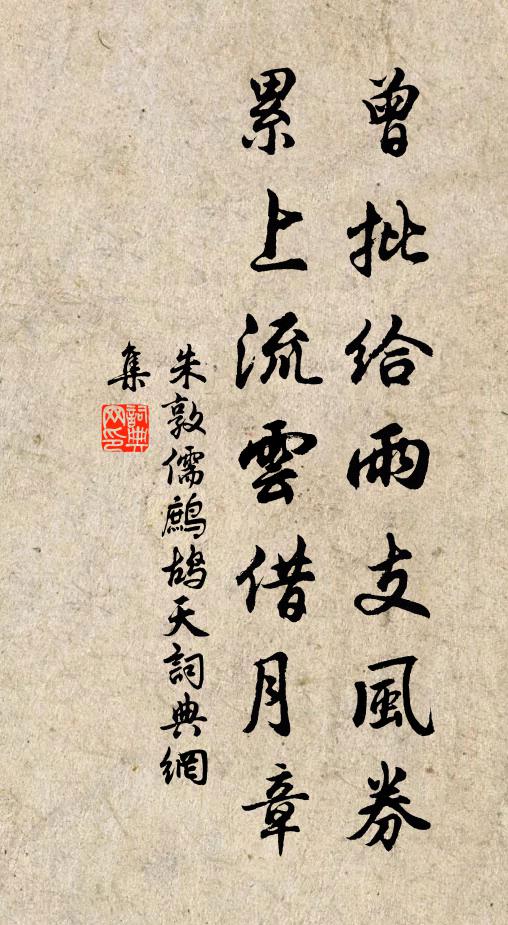 曾批給雨支風券
累上流雲借月章
朱敦儒鷓鴣天詞典網
集
詞典
网印